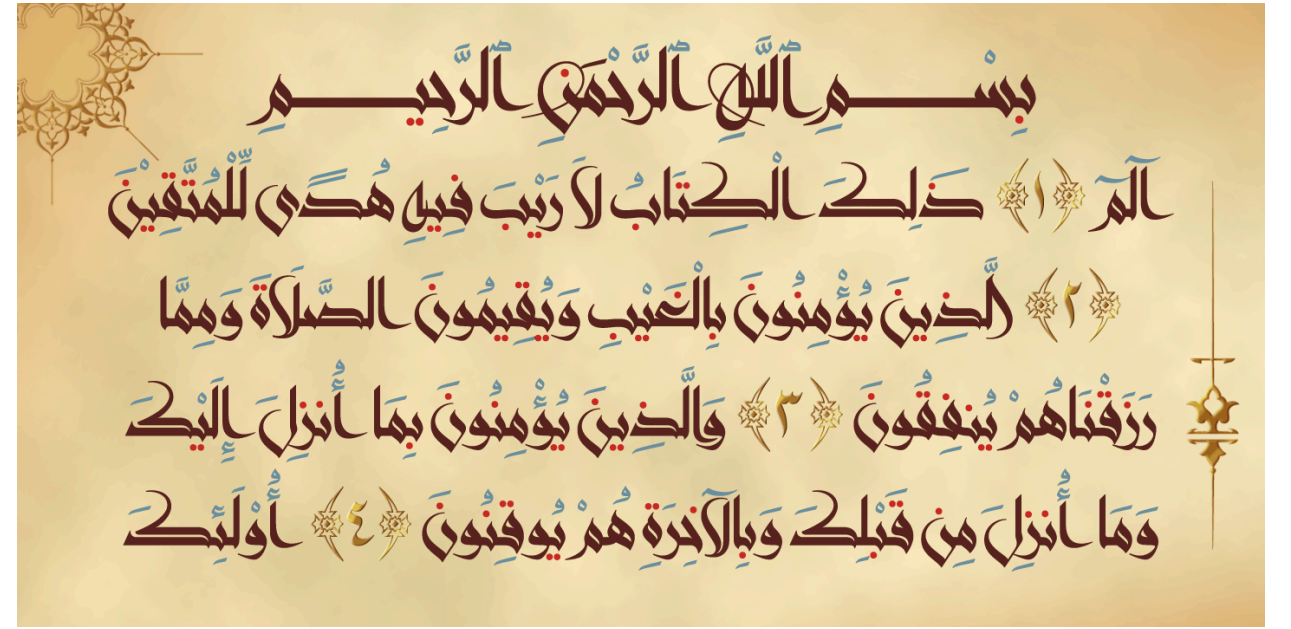 بِسْمِ ٱللَّهِ ٱلرَّحْمَنِ ٱلرَّحِيمِ
الٓمٓ ﴿١﴾ ذَلِكَ الْكِتَابُ لاَ رَيْبَ فِيهِ هُدًى لِّلْمُتَّقِيْنَ
﴿٢﴾ الَّذِينَ يُؤْمِنُونَ بِالْغَيْبِ وَيُقِيمُونَ الصَّلاَةَ وَمِمَّا
رَزَقْنَاهُمْ يُنفِقُونَ ﴿٣﴾ وَالَّذِينَ يُؤْمِنُونَ بِمَا أُنزِلَ إِلَيْكَ
وَمَا أُنزِلَ مِن قَبْلِكَ وَبِالآخِرَةِ هُمْ يُوقِنُونَ ﴿٤﴾ أُوْلَئِكَ